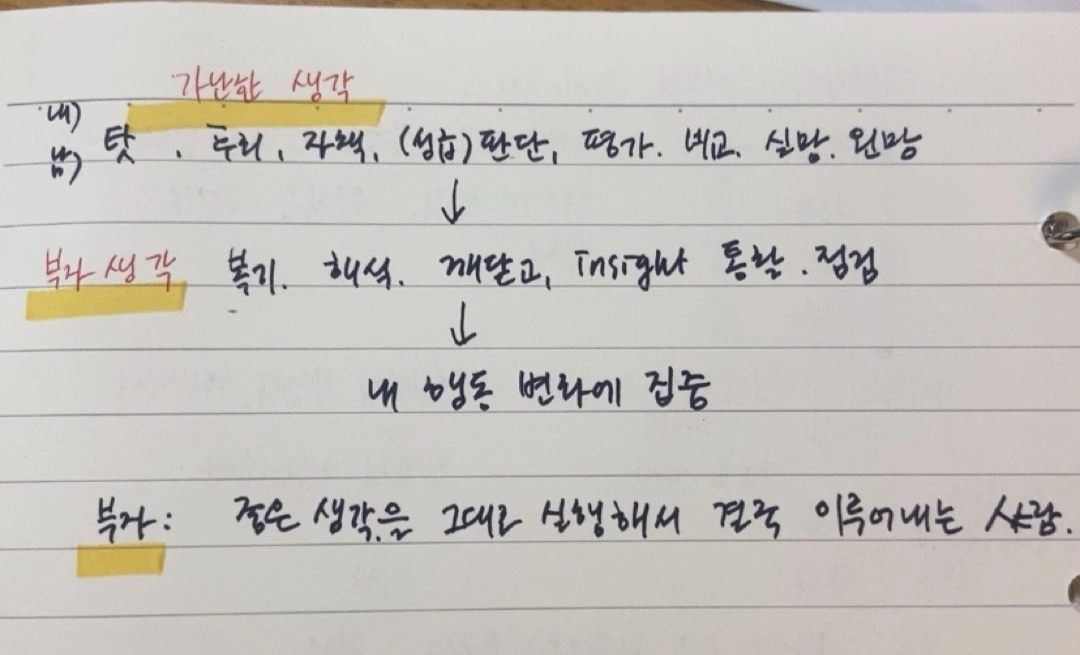 가난한 생각
내)
남) 탓, 투리, 자책, (성급)판단, 평가. 비교. 실망. 원망
↓
부자 생각 복기. 해석. 깨달고, insight 통찰. 점검
↓
내 행동 변화에 집중
부자: 좋은 생각을 그대로 실행해서 결국 이루어내는 사람.